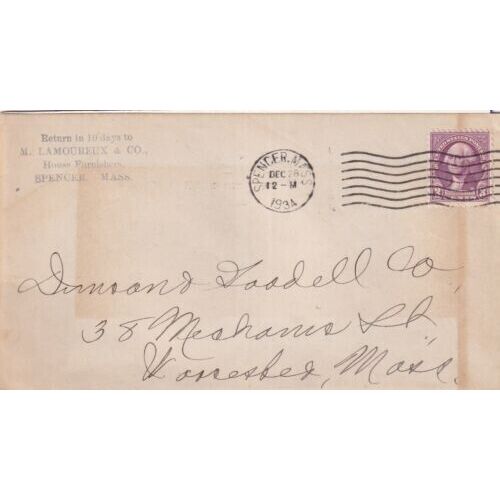 Return in 10 days to
M. LAMOUREUX & CO.,
House Furnishers,
SPENCER, MASS.
SPENCER, MASS
DEC 28
12-M
1934
3 3
Dunsand Goodell Co,
38 Mechanic St,
Worcester, Mass.